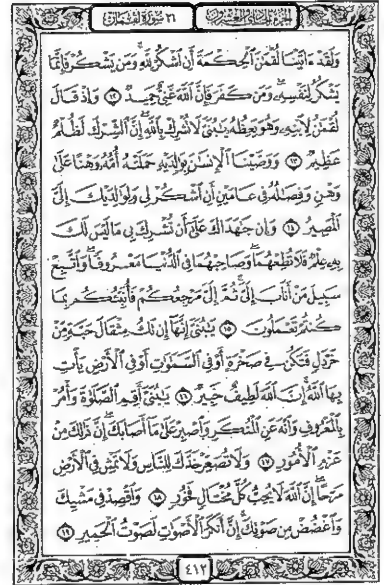 الجزء الحادي والعشرون
٣١ سورة لقمان
وَلَقَدْ ءَاتَيْنَا لُقْمَٰنَ ٱلْحِكْمَةَ أَنِ ٱشْكُرْ لِلَّهِ ۚ وَمَن يَشْكُرْ فَإِنَّمَا
يَشْكُرُ لِنَفْسِهِۦ ۖ وَمَن كَفَرَ فَإِنَّ ٱللَّهَ غَنِىٌّ حَمِيدٌ ١٢ وَإِذْ قَالَ
لُقْمَٰنُ لِٱبْنِهِۦ وَهُوَ يَعِظُهُۥ يَٰبُنَىَّ لَا تُشْرِكْ بِٱللَّهِ ۖ إِنَّ ٱلشِّرْكَ لَظُلْمٌ
عَظِيمٌ ١٣ وَوَصَّيْنَا ٱلْإِنسَٰنَ بِوَٰلِدَيْهِ حَمَلَتْهُ أُمُّهُۥ وَهْنًا عَلَىٰ
وَهْنٍ وَفِصَٰلُهُۥ فِى عَامَيْنِ أَنِ ٱشْكُرْ لِى وَلِوَٰلِدَيْكَ إِلَىَّ
ٱلْمَصِيرُ ١٤ وَإِن جَٰهَدَاكَ عَلَىٰٓ أَن تُشْرِكَ بِى مَا لَيْسَ لَكَ
بِهِۦ عِلْمٌ فَلَا تُطِعْهُمَا ۖ وَصَاحِبْهُمَا فِى ٱلدُّنْيَا مَعْرُوفًا ۖ وَٱتَّبِعْ
سَبِيلَ مَنْ أَنَابَ إِلَىَّ ۚ ثُمَّ إِلَىَّ مَرْجِعُكُمْ فَأُنَبِّئُكُم بِمَا
كُنتُمْ تَعْمَلُونَ ١٥ يَٰبُنَىَّ إِنَّهَآ إِن تَكُ مِثْقَالَ حَبَّةٍ مِّنْ
خَرْدَلٍ فَتَكُن فِى صَخْرَةٍ أَوْ فِى ٱلسَّمَٰوَٰتِ أَوْ فِى ٱلْأَرْضِ يَأْتِ
بِهَا ٱللَّهُ ۚ إِنَّ ٱللَّهَ لَطِيفٌ خَبِيرٌ ١٦ يَٰبُنَىَّ أَقِمِ ٱلصَّلَوٰةَ وَأْمُرْ
بِٱلْمَعْرُوفِ وَٱنْهَ عَنِ ٱلْمُنكَرِ وَٱصْبِرْ عَلَىٰ مَآ أَصَابَكَ ۖ إِنَّ ذَٰلِكَ مِنْ
عَزْمِ ٱلْأُمُورِ ١٧ وَلَا تُصَعِّرْ خَدَّكَ لِلنَّاسِ وَلَا تَمْشِ فِى ٱلْأَرْضِ
مَرَحًا ۖ إِنَّ ٱللَّهَ لَا يُحِبُّ كُلَّ مُخْتَالٍ فَخُورٍ ١٨ وَٱقْصِدْ فِى مَشْيِكَ
وَٱغْضُضْ مِن صَوْتِكَ ۚ إِنَّ أَنكَرَ ٱلْأَصْوَٰتِ لَصَوْتُ ٱلْحَمِيرِ ١٩
٤١٢